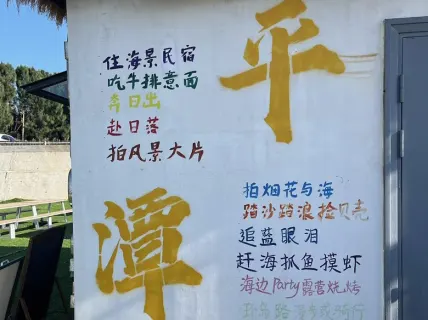 住海景民宿
吃牛排意面
奔日出
赴日落
拍风景大片
平
潭
拍烟花与海
踏沙踏浪捡贝壳
追蓝眼泪
赶海抓鱼摸虾
海边Party露营烧烤